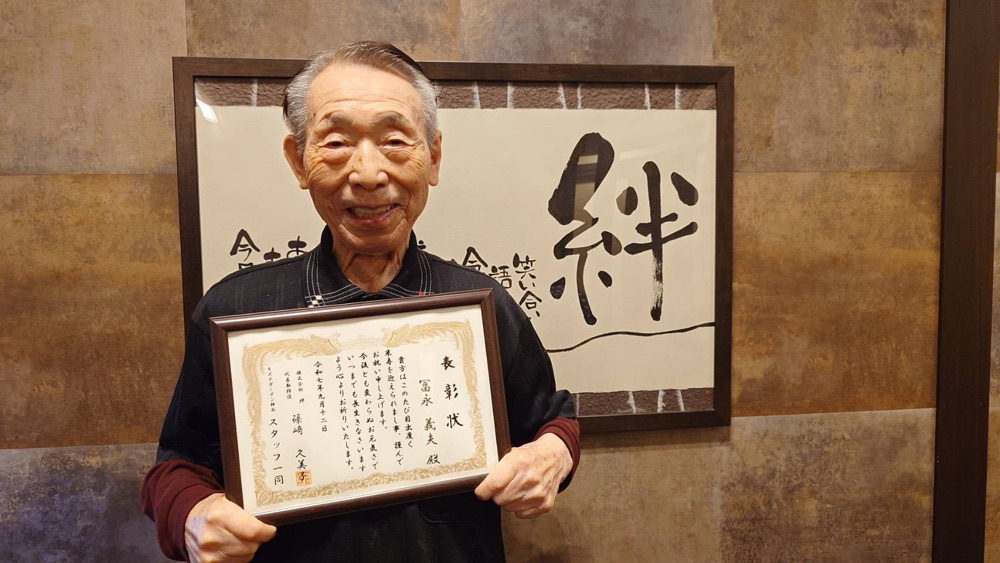 絆
笑い合
語
今
表彰状
冨永 義夫 殿
貴方はこのたび目出度く
米寿を迎えられまし事、謹んで
お祝い申し上げます。
今後とも変わらぬお元気さで
いつまでも長生きなさいます
よう心よりお祈りいたします。
令和七年九月十二日
株式会社 絆
代表取締役 篠﨑 久美子
スタッフ一同